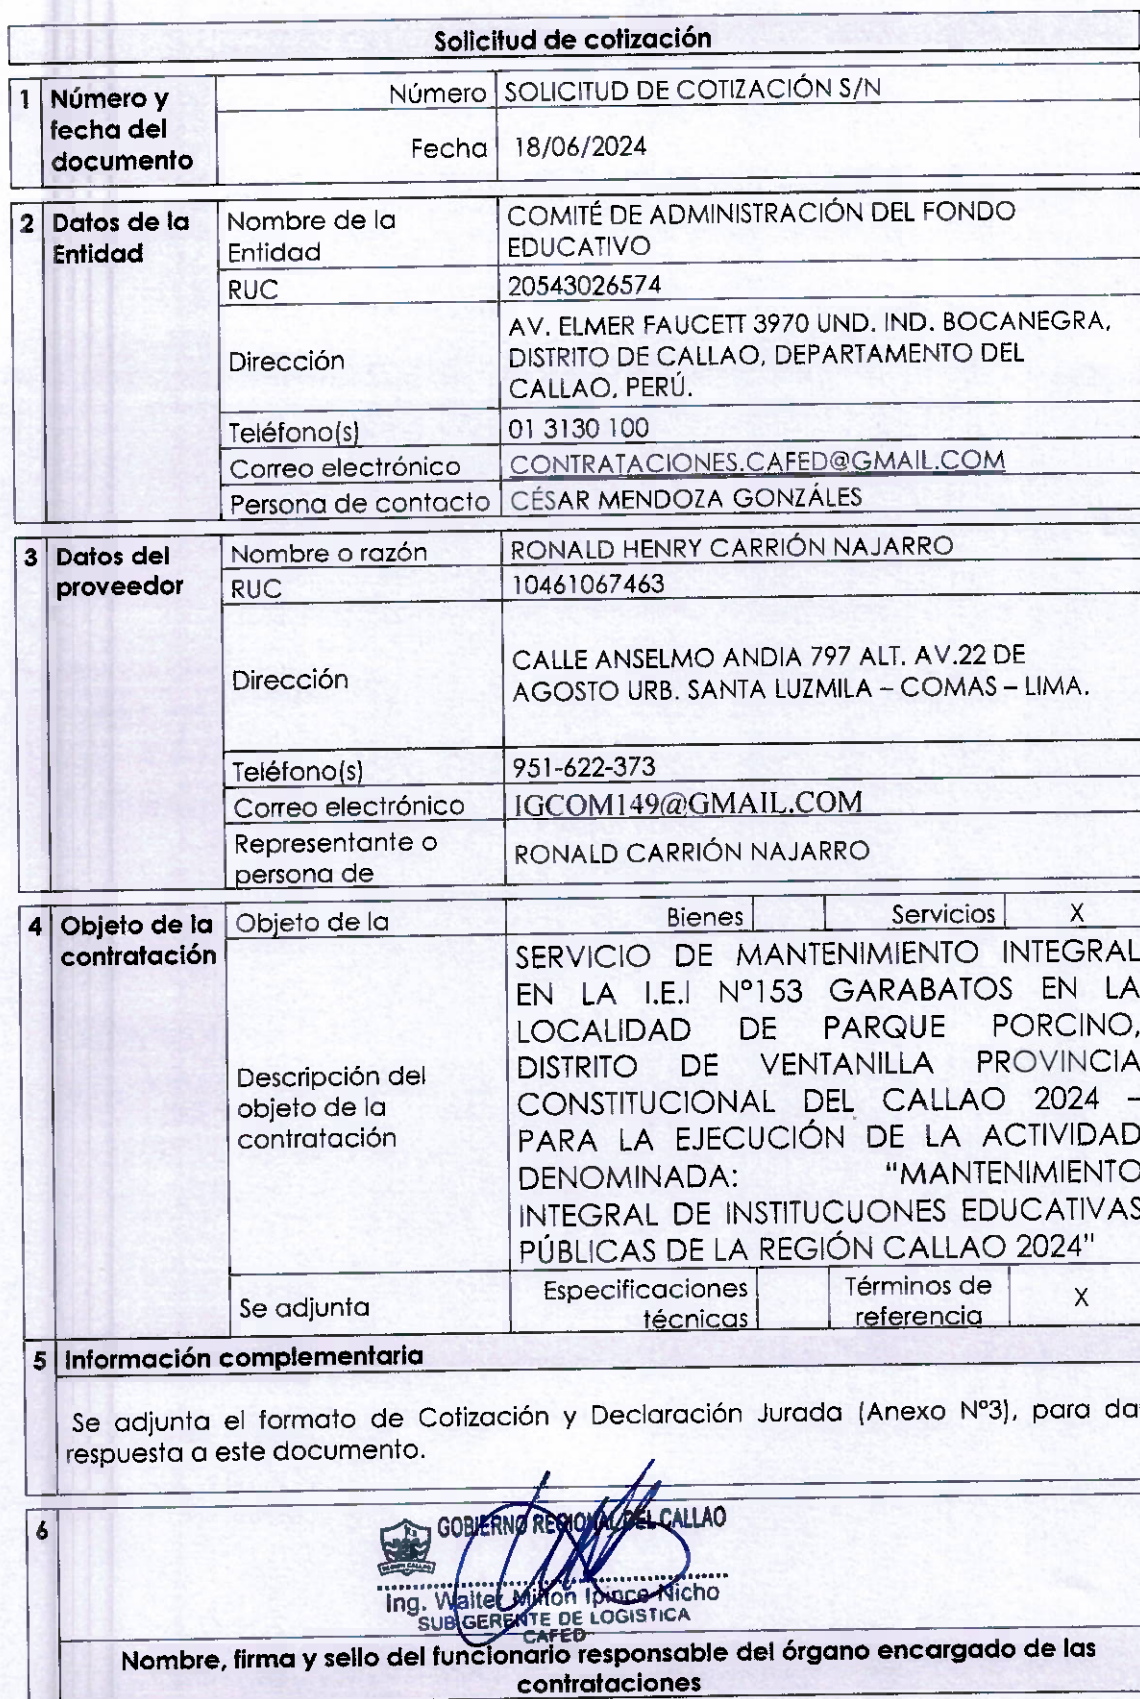 Solicitud de cotización
1 Número y fecha del documento
Número SOLICITUD DE COTIZACIÓN S/N
Fecha 18/06/2024
2 Datos de la Entidad
Nombre de la Entidad COMITÉ DE ADMINISTRACIÓN DEL FONDO
EDUCATIVO
RUC 20543026574
Dirección AV. ELMER FAUCETT 3970 UND. IND. BOCANEGRA,
DISTRITO DE CALLAO, DEPARTAMENTO DEL
CALLAO, PERÚ.
Teléfono(s) 01 3130 100
Correo electrónico CONTRATACIONES.CAFED@GMAIL.COM
Persona de contacto CÉSAR MENDOZA GONZÁLES
3 Datos del proveedor
Nombre o razón RONALD HENRY CARRIÓN NAJARRO
RUC 10461067463
Dirección CALLE ANSELMO ANDIA 797 ALT. AV.22 DE
AGOSTO URB. SANTA LUZMILA – COMAS – LIMA.
Teléfono(s) 951-622-373
Correo electrónico IGCOM149@GMAIL.COM
Representante o persona de RONALD CARRIÓN NAJARRO
4 Objeto de la contratación
Objeto de la Bienes Servicios X
Descripción del objeto de la contratación
SERVICIO DE MANTENIMIENTO INTEGRAL
EN LA I.E.I Nº153 GARABATOS EN LA
LOCALIDAD DE PARQUE PORCINO,
DISTRITO DE VENTANILLA PROVINCIA
CONSTITUCIONAL DEL CALLAO 2024 –
PARA LA EJECUCIÓN DE LA ACTIVIDAD
DENOMINADA: "MANTENIMIENTO
INTEGRAL DE INSTITUCUONES EDUCATIVAS
PÚBLICAS DE LA REGIÓN CALLAO 2024"
Se adjunta Especificaciones técnicas Términos de referencia X
5 Información complementaria
Se adjunta el formato de Cotización y Declaración Jurada (Anexo Nº3), para da
respuesta a este documento.
6
GOBIERNO REGIONAL DEL CALLAO
Ing. Walter Milton Ipince Nicho
SUB GERENTE DE LOGISTICA
CAFED
Nombre, firma y sello del funcionario responsable del órgano encargado de las
contrataciones